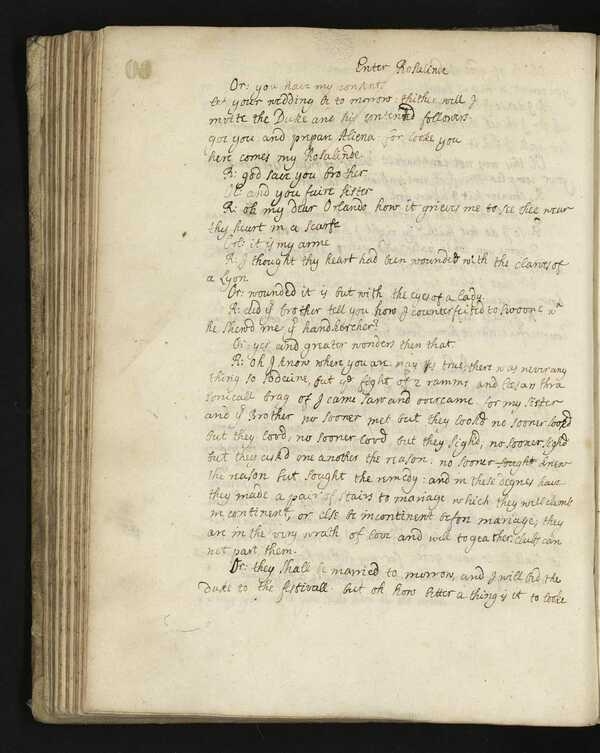 Enter Rosalinde
Or: you have my consent.
let your wedding be to morrow: thither will I
invite the Duke and his contented followers
goe you and prepare Aliena for looke you
here comes my Rosalinde.
R: god save you brother
Ol: and you faire sister
R: oh my dear Orlando how it grieves me to see thee wear
thy heart in a scarfe
Orl: it is my arme
R: I thought thy heart had been wounded with the clawes of
a Lyon
Or: wounded it is but with the eyes of a lady.
R: did yr brother tell you how I counterfeited to swoone wn
he shewd me yr handkercher?
Or: yes and greater wonders then that.
R: Oh I know where you are nay tis true, there was never any
thing so sodeine, but ye fight of 2 ramms and Cesars thra
sonicall brag of I came saw and overcame for my sister
and yr Brother no sooner met but they lookd no sooner lookd
but they lovd, no sooner lovd but they sighd, no sooner sighd
but they askd one another the reason: no sooner sought knew
the reason but sought the remedy: and in these degrees have
they made a pair of stairs to mariage which they will climb
incontinent, or else be incontinent before mariage, they
are in the very wrath of love and will togeather clubs can
not part them.
Or: they shall be married to morrow, and I will bid the
Duke to the festivall. but oh how bitter a thing is it to looke